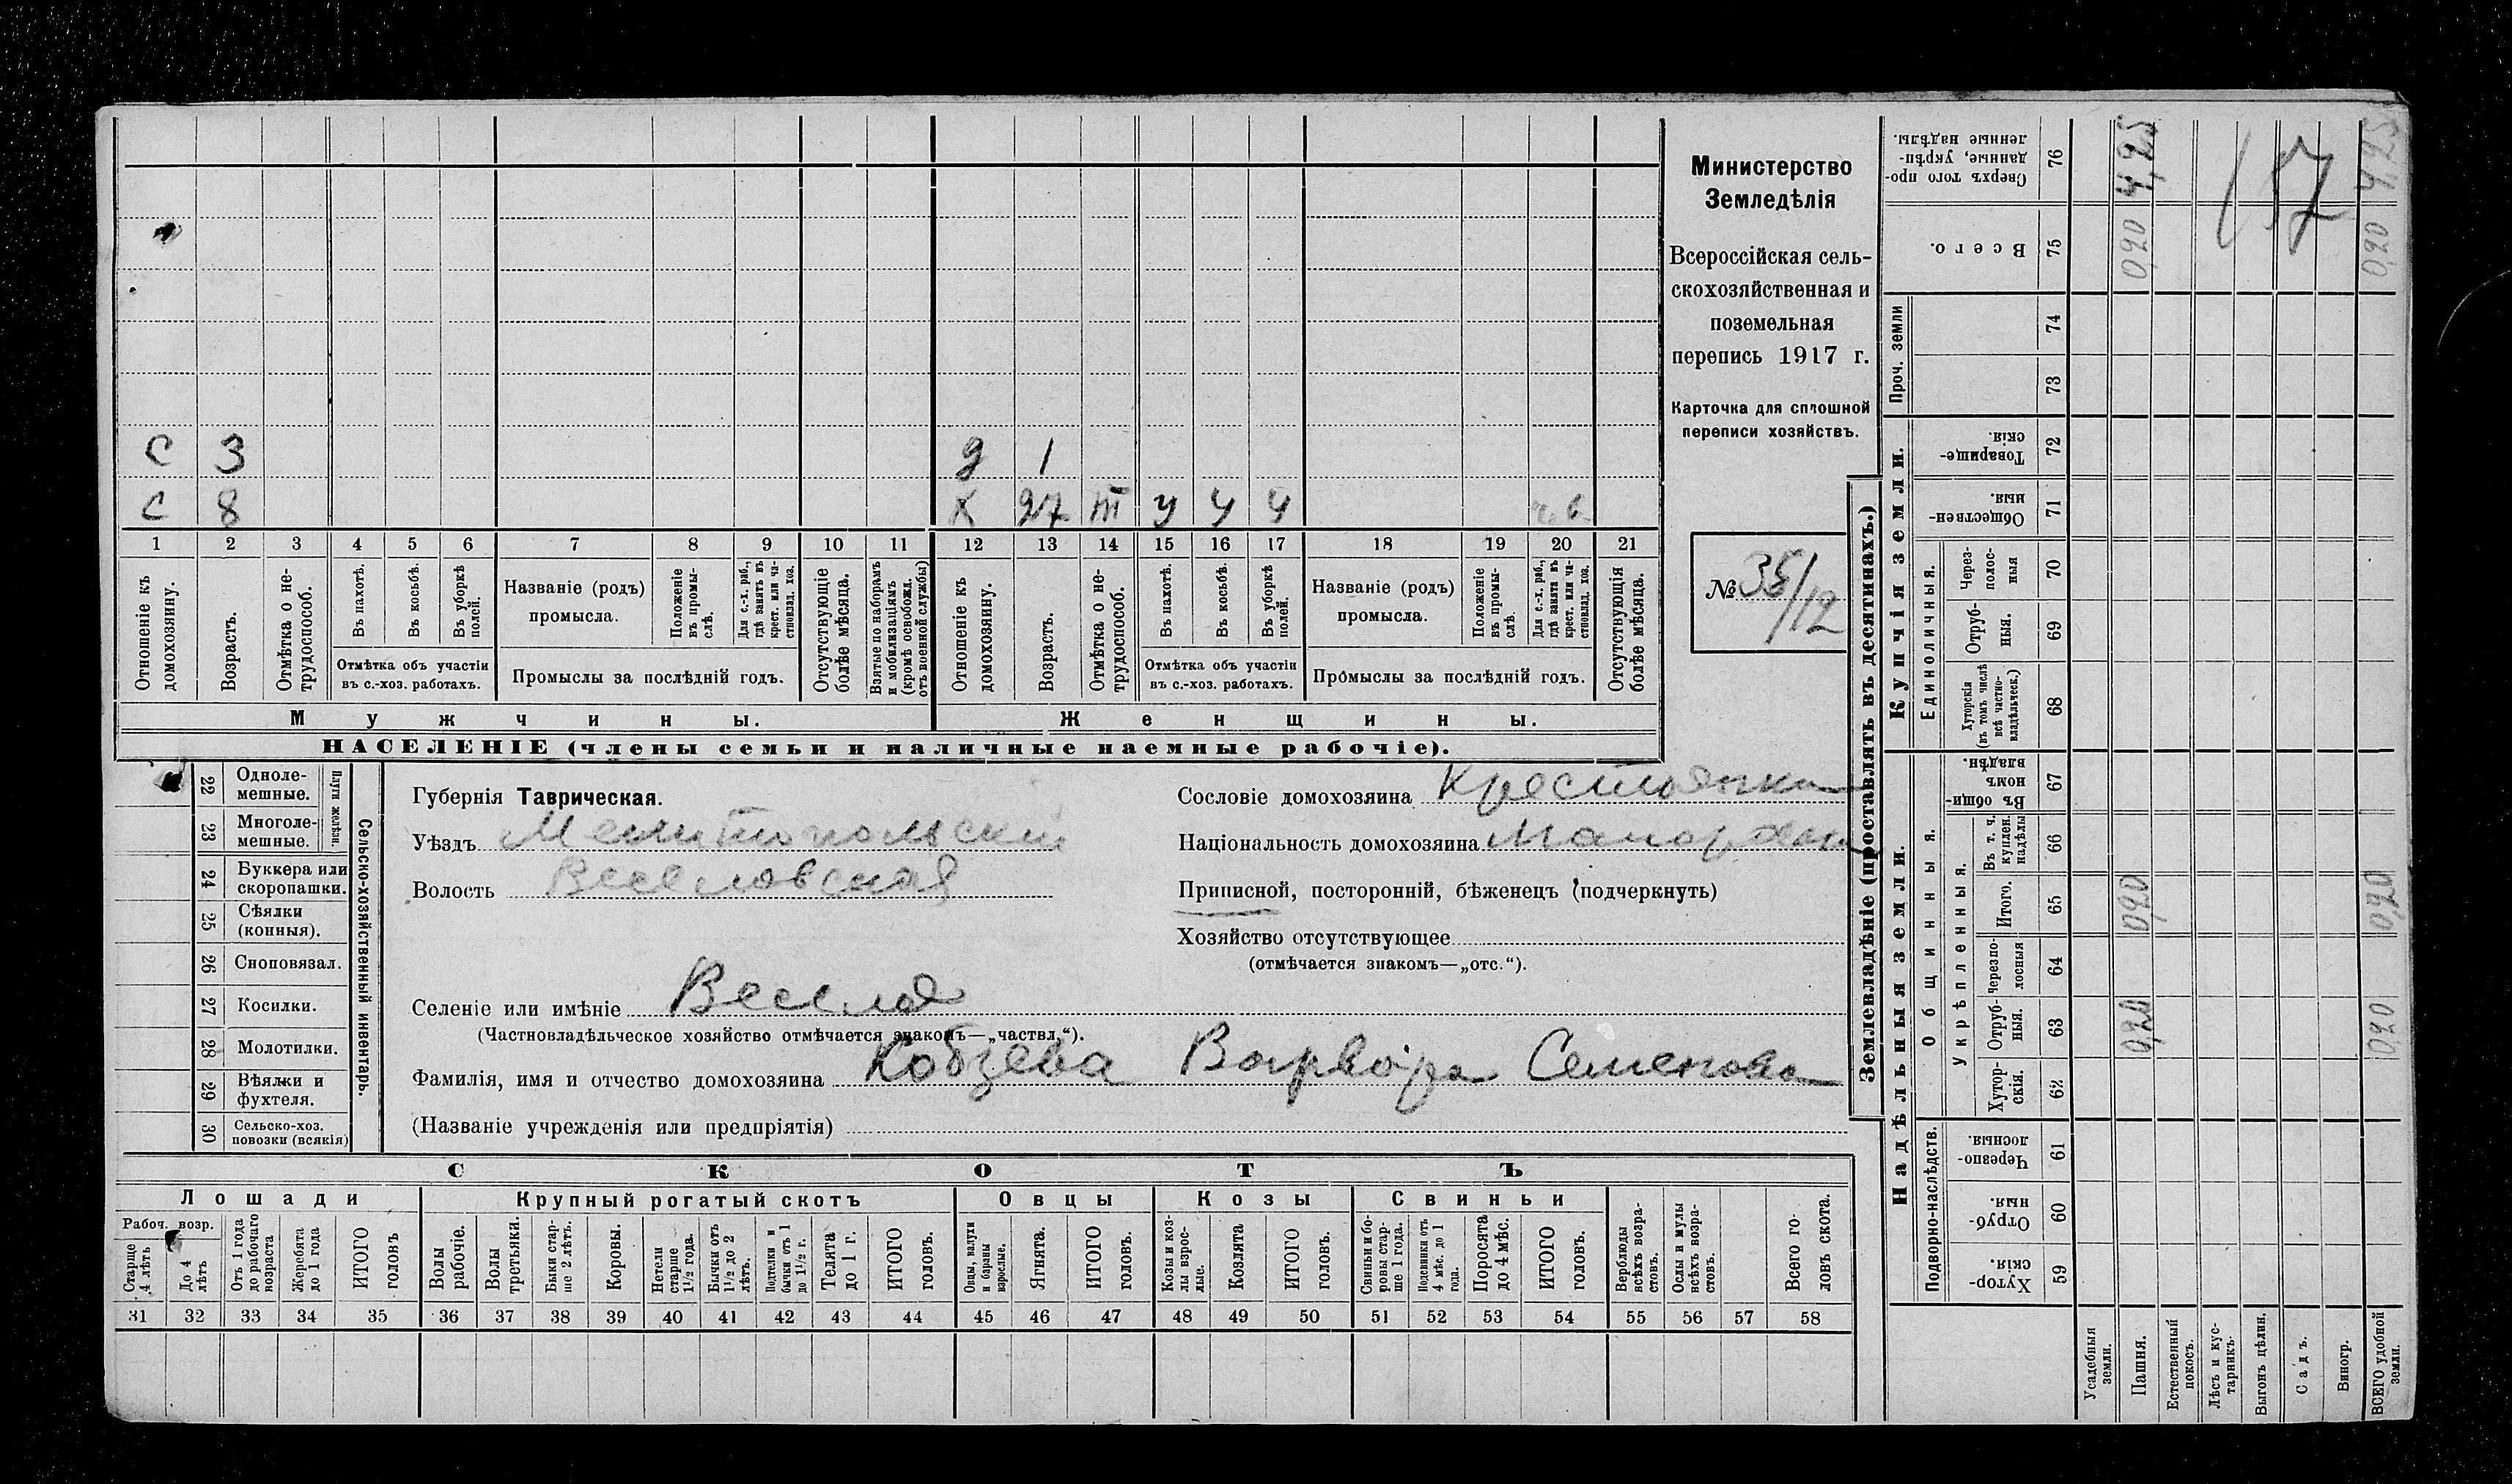 С 3
д 1
С 8
Х 27 III У У У
1 2 3 4 5 6 7 8 9 10 11 12 13 14 15 16 17 18 19 20 21
Отношеніе къ домохозяину.
Возрастъ.
Отмѣтка о не-
трудоспособ.
Въ пахотѣ.
Въ косьбѣ.
Въ уборкѣ
полей.
Отмѣтка объ участіи
въ с.-хоз. работахъ.
Названіе (родъ)
промысла.
Положеніе
въ промы-
слѣ.
Для с.-х. раб.,
гдѣ занятъ въ
крест. или ча-
стновлад. хоз.
Промыслы за послѣдній годъ.
Отсутствующіе
болѣе мѣсяца.
Взятые по наборамъ
и мобилизаціямъ
(кромѣ освобожд.
отъ военной службы)
Отношеніе къ
домохозяину.
Возрастъ.
Отмѣтка о не-
трудоспособ.
Въ пахотѣ.
Въ косьбѣ.
Въ уборкѣ
полей.
Отмѣтка объ участіи
въ с.-хоз. работахъ.
Названіе (родъ)
промысла.
Положеніе
въ промы-
слѣ.
Для с.-х. раб.,
гдѣ занята въ
крест. или ча-
стновлад. хоз.
Промыслы за послѣдній годъ.
Отсутствующія
болѣе мѣсяца.
Мужчины.
Женщины.
НАСЕЛЕНІЕ (члены семьи и наличные наемные рабочіе).
Министерство
Земледѣлія
Всероссійская сель-
скохозяйственная и
поземельная
перепись 1917 г.
Карточка для сплошной
переписи хозяйствъ.
№ 35/12
22 Одноле-
мешные.
23 Многоле-
мешные.
Плуги желѣзн.
24 Буккера или
скоропашки.
25 Сѣялки
(конныя).
26 Сноповязал.
27 Косилки.
28 Молотилки.
29 Вѣялки и
фухтеля.
30 Сельско-хоз.
повозки (всякія)
Сельско-хозяйственный инвентарь.
Губернія Таврическая.
Уѣздъ Мелитопольскій
Волость Веселовская
Сословіе домохозяина Крестьянка
Національность домохозяина
Приписной, посторонній, бѣженецъ (подчеркнуть)
Хозяйство отсутствующее
(отмѣчается знакомъ—„отс.“).
Селеніе или имѣніе Веселое
(Частновладѣльческое хозяйство отмѣчается знакомъ—„частвл.“).
Фамилія, имя и отчество домохозяина Кобзева Варвара Семенова
(Названіе учрежденія или предпріятія)
СКОТЪ
Лошади
Крупный рогатый скотъ
Овцы
Козы
Свиньи
Рабоч. возр.
Старше
4 лѣтъ
До 4
лѣтъ
Отъ 1 года
до рабочаго
возраста
Жеребята
до 1 года
ИТОГО
головъ
Волы
рабочіе.
Волы
третьяки.
Быки стар-
ше 2 лѣтъ.
Коровы.
Нетели
старше
1½ года.
Бычки отъ
1½ до 2
лѣтъ.
Подтелки и
бычки отъ 1
до 1½ г.
Телята
до 1 г.
ИТОГО
головъ.
Овцы, валухи
и бараны
взрослые.
Ягнята.
ИТОГО
головъ.
Козы и коз-
лы взрос-
лые.
Козлята
ИТОГО
головъ.
Свиньи и бо-
ровы стар-
ше 1 года.
Подсвинки отъ
4 мѣс. до 1
года.
Поросята
до 4 мѣс.
ИТОГО
головъ.
Верблюды
всѣхъ возра-
стовъ.
Ослы и мулы
всѣхъ возра-
стовъ.
Всего го-
ловъ скота.
31 32 33 34 35 36 37 38 39 40 41 42 43 44 45 46 47 48 49 50 51 52 53 54 55 56 57 58
Землевладѣніе (проставлять въ десятинахъ.)
Надѣльныя земли.
Купчія земли.
Проч. земли
Подворно-наслѣдств.
Общинныя.
Укрѣпленныя.
Единоличныя.
Сверхъ того про-
данные, укрѣп-
ленные надѣлы.
76 4,25 4,25
157
Всего.
75 0,20 0,20
74
73
Товарище-
скія.
72
Обществен-
ныя.
71
Через-
полос-
ныя
70
Отруб-
ныя.
69
Хуторскія
(въ томъ числѣ
всѣ частно-
владѣльческ.)
68
Въ общин-
номъ
владѣн.
67
Въ т. ч.
куплен.
надѣлы
66
Итого.
65 0,20 0,20
Черезпо-
лосныя
64
Отруб-
ныя.
63 0,20 0,20
Хутор-
скія.
62
Черезпо-
лосныя.
61
Отруб-
ныя.
60
Хутор-
скія.
59
Усадебныя
земли.
Пашня.
Естественный
покосъ.
Лѣсъ и кус-
тарникъ.
Выгонъ цѣлин.
Садъ.
Виногр.
ВСЕГО удобной
земли.